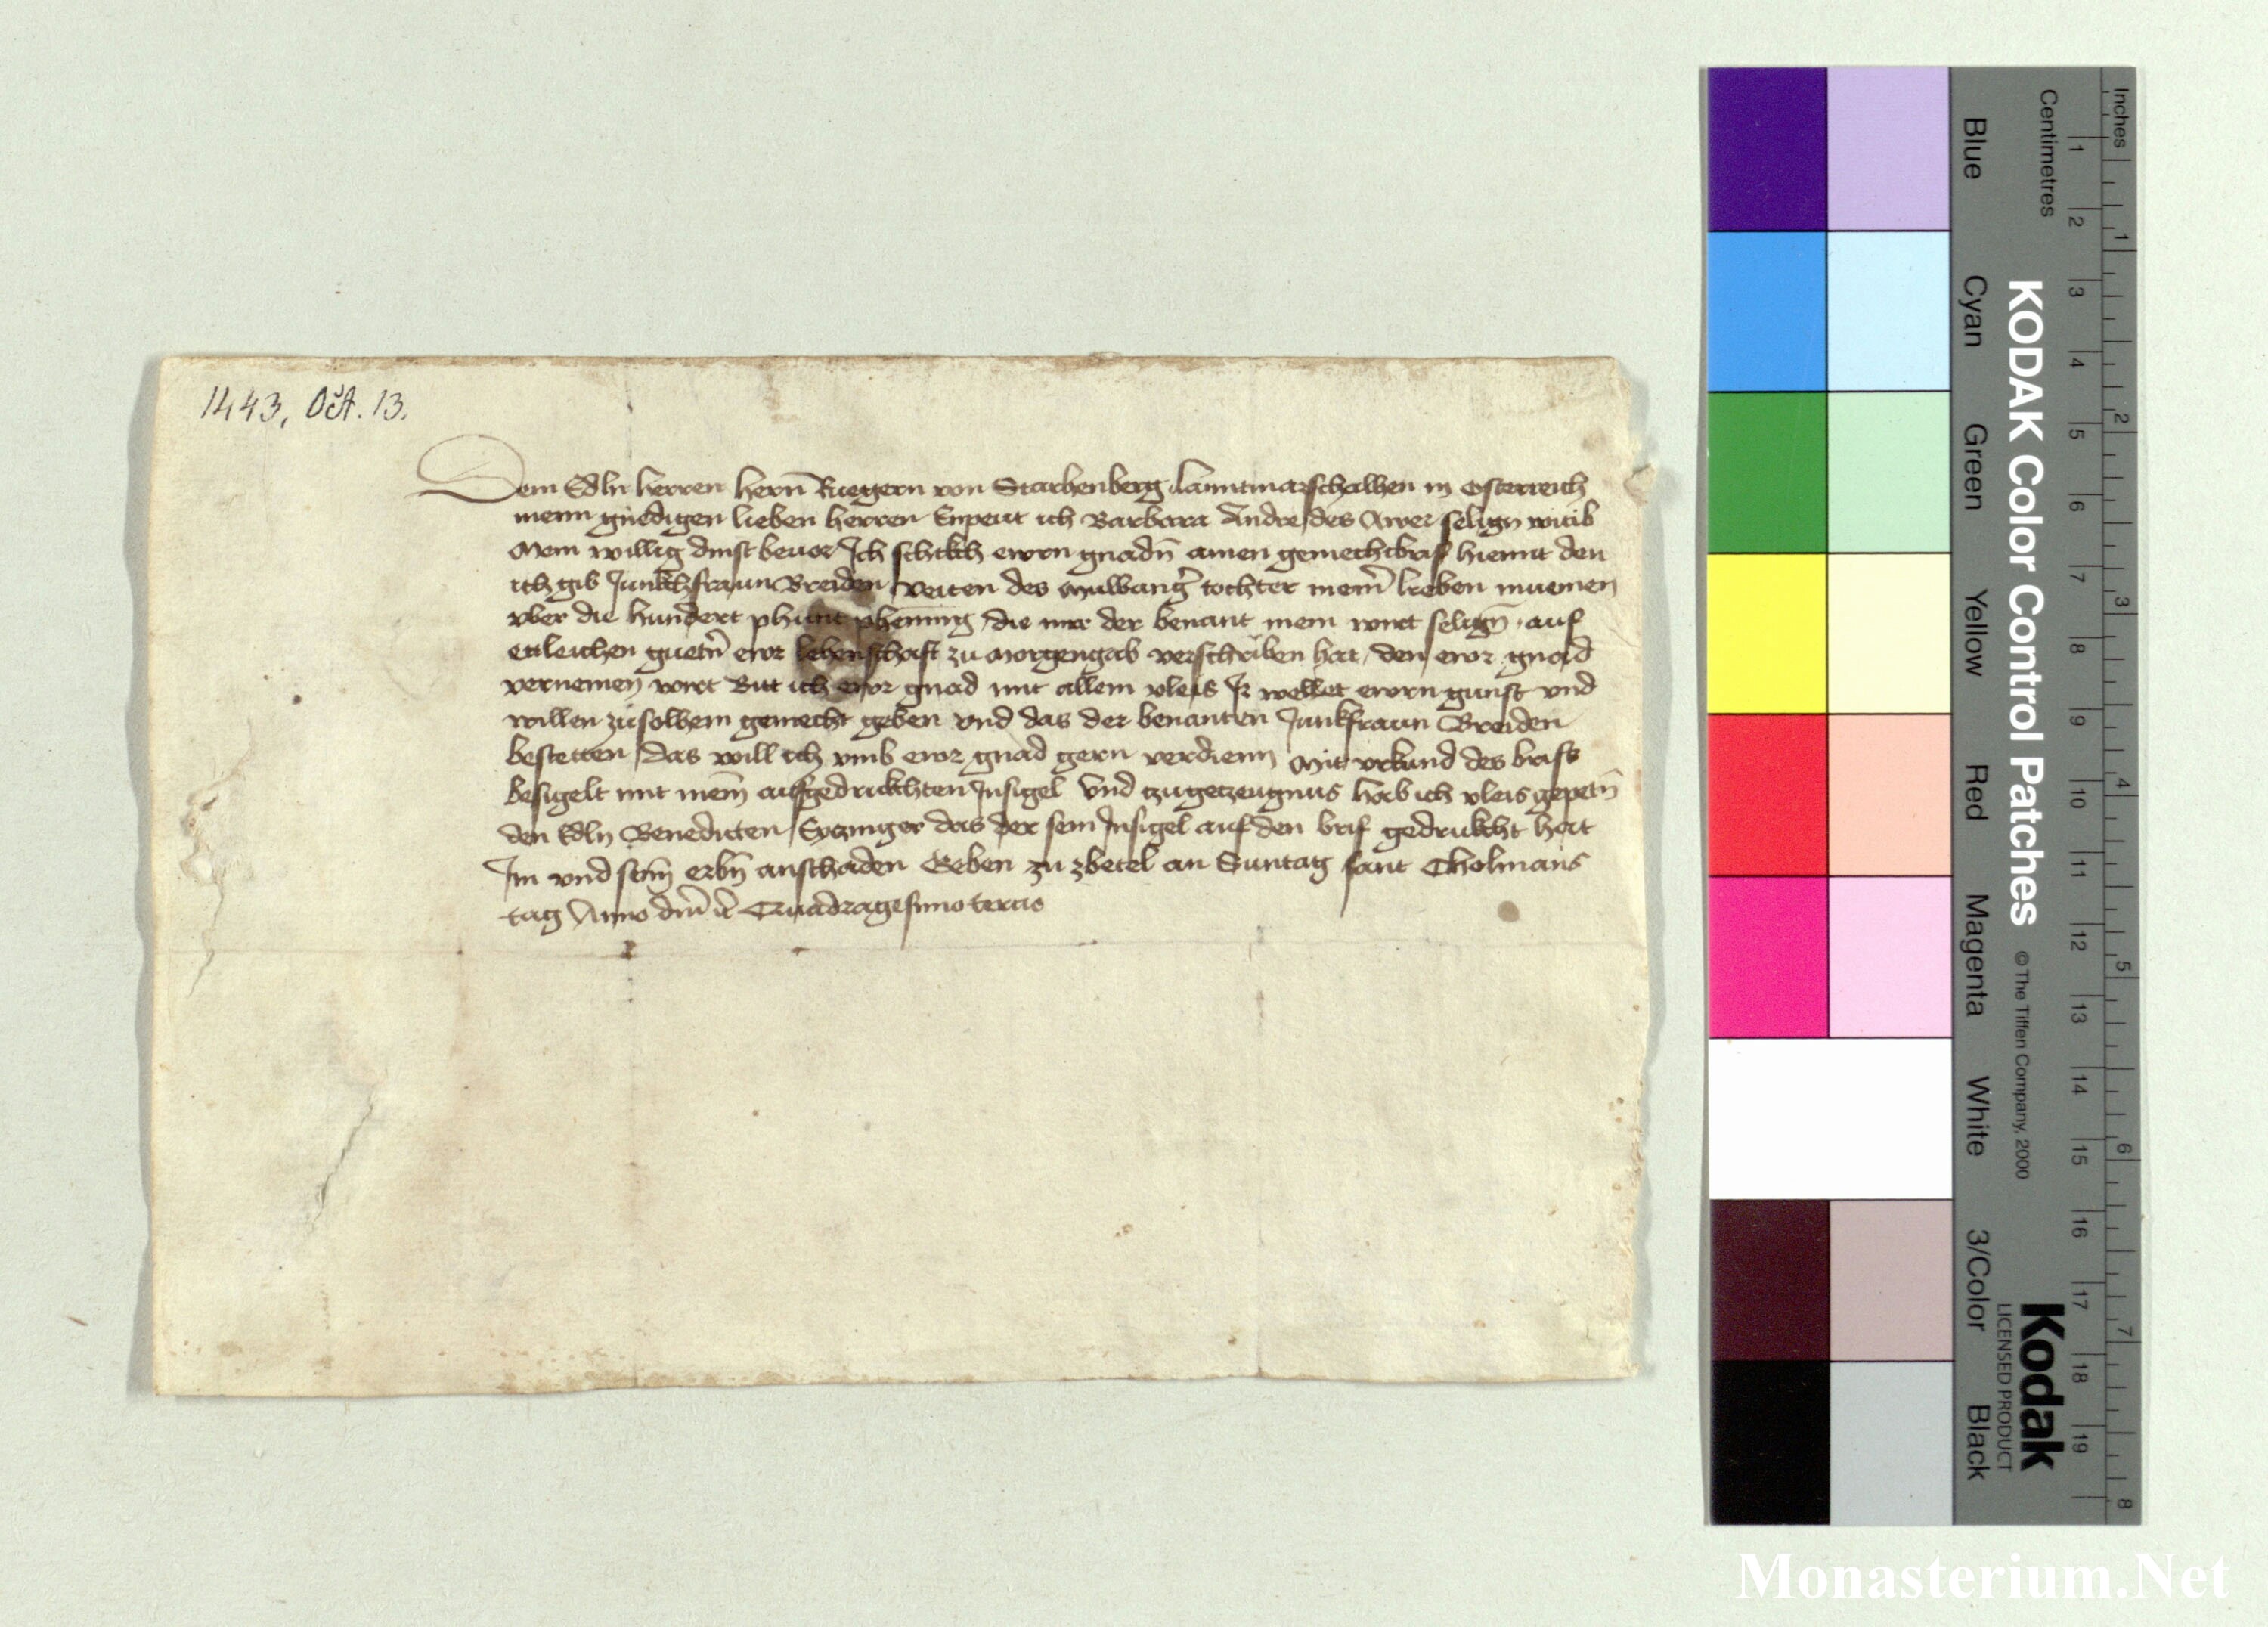 1443, Oct. 13.
Dem Edln herren hern̄ Ruegern von Starhenberg lanntmarschalhen in Osterreich
meinn gnedigen lieben herren Enpeut ich Barbara Andre des Awer selign witib
Mein willig dinst beuor Ich schikch ewrn gnadn̄ ainen gemechtbrif hiemit den
ich gib Junkchfraun Breiden Veiten des Mulwang̉ tochter mein̄ lieben muemen
vber die hundert phunt phening die mir der benant mein wirt selign̄ auf
etleichen guetn̄ ewr lehenschaft zu morgengab verschriben hat den ewr gnad
vernemen wirt Bitt ich ewr gnad mit allem vleis Ir wellet ewrn gunst vnd
willen zu solhem gemecht geben vnd das der benanten Junkfraun Breiden
bestetten das will ich vmb ewr gnad gern verdienn Mit vrkund des brifs
besigelt mit mein̄ aufgedrukchten Insigel Vnd tzu getzeugnus hab ich vleis gepetn̄
den Edln Benedicten das der sein Insigel auf den brif gedrukcht hat
Im vnd sein̄ erbn̄ anschaden Geben zu zbetel an Suntag sant Cholmans
tag Anno dn̄i ꝛc Quadragesimo tercio
Inches
Centimetres
1 2 3 4 5 6 7 8 9 10 11 12 13 14 15 16 17 18 19
1 2 3 4 5 6 7 8
KODAK Color Control Patches
© The Tiffen Company, 2000
Kodak
LICENSED PRODUCT
Blue
Cyan
Green
Yellow
Red
Magenta
White
3/Color
Black
Monasterium.Net